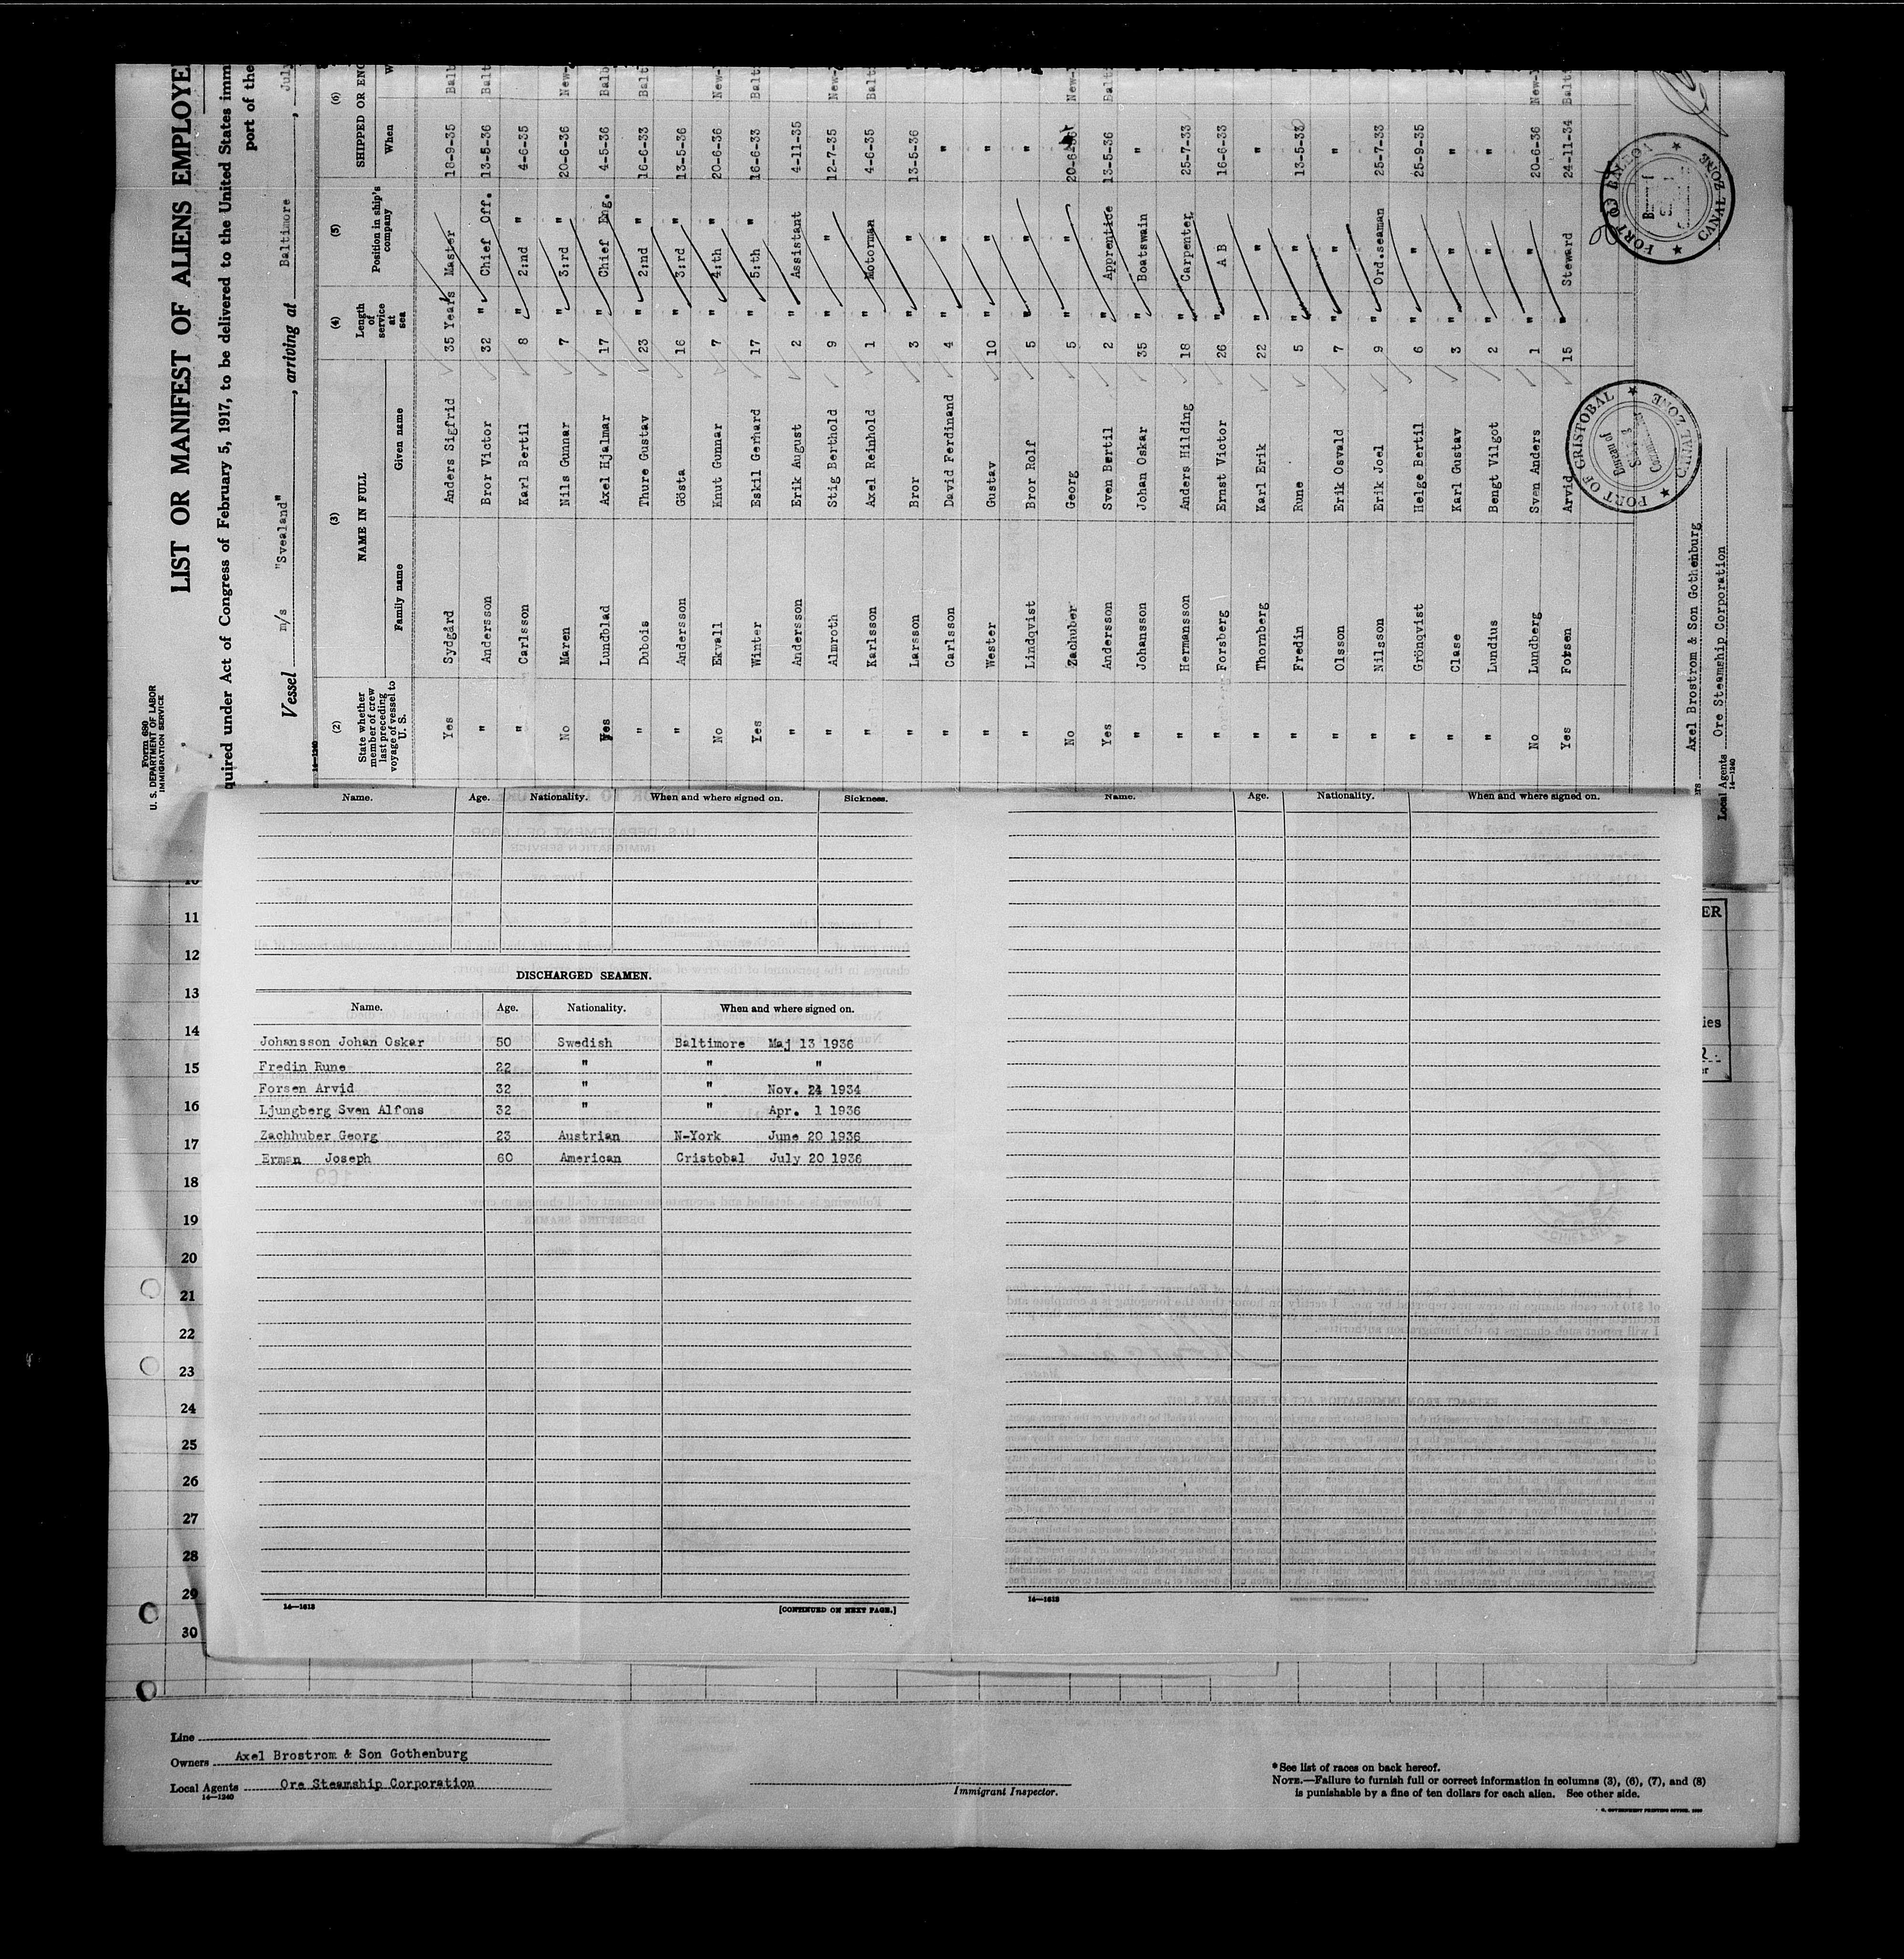 Form 680
U. S. DEPARTMENT OF LABOR
IMMIGRATION SERVICE
LIST OR MANIFEST OF ALIENS EMPLOYE
quired under Act of Congress of February 5, 1917, to be delivered to the United States imm
port of the
Vessel m/s "Svealand", arriving at Baltimore, July
14—1240
(2) (3) (4) (5) (6)
State whether member of crew last preceding voyage of vessel to U. S. NAME IN FULL Length of service at sea Position in ship's company SHIPPED OR ENG
Family name Given name When W
Yes Sydgård Anders Sigfrid 35 Years Master 18-9-35 Balt
" Andersson Bror Victor 32 " Chief Off. 13-5-36 Balt
" Carlsson Karl Bertil 8 " 2:nd " 4-6-35
No Maren Nils Gunnar 7 " 3:rd " 20-6-36 New-
Yes Lundblad Axel Hjalmar 17 " Chief Eng. 4-5-36 Balb
" Dubois Thure Gustav 23 " 2:nd " 16-6-33 Balt
" Andersson Gösta 16 " 3:rd " 13-5-36
No Ekvall Knut Gunnar 7 " 4:th " 20-6-36 New-
Yes Winter Eskil Gerhard 17 " 5:th " 16-6-33 Balt
" Andersson Erik August 2 " Assistant 4-11-35
" Almroth Stig Berthold 9 " " 12-7-35 New-
" Karlsson Axel Reinhold 1 " Motorman 4-6-35 Balt
" Larsson Bror 3 " " 13-5-36
" Carlsson David Ferdinand 4 " " "
" Wester Gustav 10 " " "
" Lindqvist Bror Rolf 5 " " "
No Zachuber Georg 5 " " 20-6-36 New-
Yes Andersson Sven Bertil 2 " Apprentice 13-5-36 Balt
" Johansson Johan Oskar 35 " Boatswain "
" Hermansson Anders Hilding 18 " Carpenter 25-7-33
" Forsberg Ernst Victor 26 " A B 16-6-33
" Thornberg Karl Erik 22 " " "
" Fredin Rune 5 " " 13-5-36
" Olsson Erik Osvald 7 " " "
" Nilsson Erik Joel 9 " Ord.seaman 25-7-33
" Grönqvist Helge Bertil 6 " " 25-9-35
" Clase Karl Gustav 3 " " "
" Lundius Bengt Vilgot 2 " " "
No Lundberg Sven Anders 1 " " 20-6-36 New-
Yes Forsen Arvid 15 " Steward 24-11-34 Balt
PORT OF CRISTOBAL
Bureau of
CANAL ZONE
CANAL ZONE
Axel Brostrom & Son Gothenburg
Local Agents Ore Steamship Corporation
14—1240
Name. Age. Nationality. When and where signed on. Sickness.
Name. Age. Nationality. When and where signed on.
DISCHARGED SEAMEN.
Name. Age. Nationality. When and where signed on.
Johansson Johan Oskar 50 Swedish Baltimore Maj 13 1936
Fredin Rune 22 " " "
Forsen Arvid 32 " " Nov. 24 1934
Ljungberg Sven Alfons 32 " " Apr. 1 1936
Zachhuber Georg 23 Austrian N-York June 20 1936
Erman Joseph 60 American Cristobal July 20 1936
14—1613 [CONTINUED ON NEXT PAGE.]
14—1613
10
11
12
13
14
15
16
17
18
19
20
21
22
23
24
25
26
27
28
29
30
ER
ies
Line
Owners Axel Brostrom & Son Gothenburg
Local Agents Ore Steamship Corporation
14—1240
Immigrant Inspector.
* See list of races on back hereof.
NOTE.—Failure to furnish full or correct information in columns (3), (6), (7), and (8)
is punishable by a fine of ten dollars for each alien. See other side.